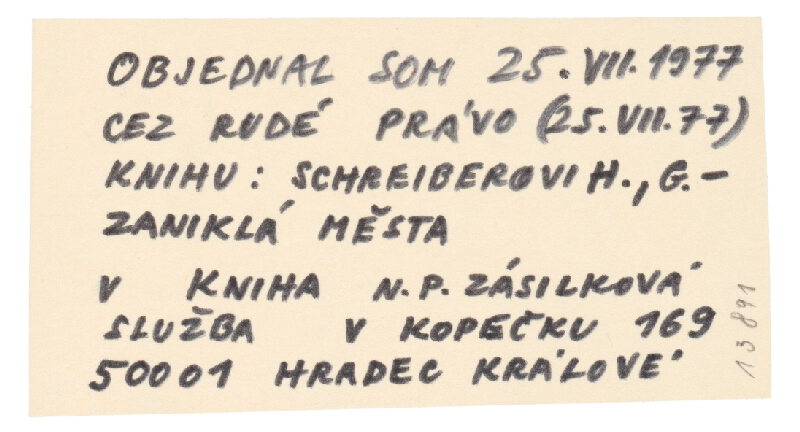 OBJEDNAL SOM 25. VII. 1977
CEZ RUDÉ PRÁVO (25. VII. 77)
KNIHU: SCHREIBEROVI H., G. –
ZANIKLÁ MĚSTA
V KNIHA N.P. ZÁSILKOVÁ
SLUŽBA V KOPEČKU 169
50001 HRADEC KRÁLOVÉ
13891